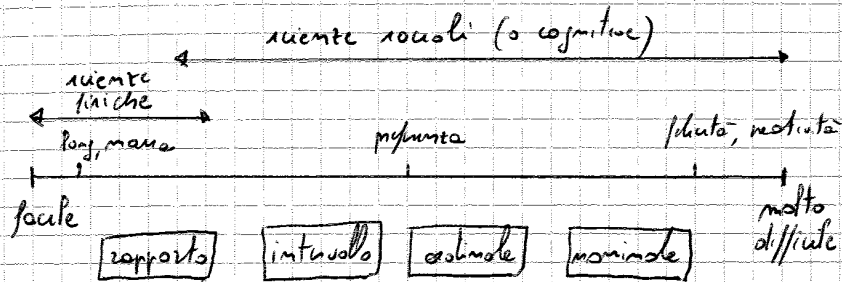 scienze sociali (o cognitive)
scienze
fisiche
massa
felicità, creatività
facile
molto
difficile
rapporto
intervallo
ordinale
nominale